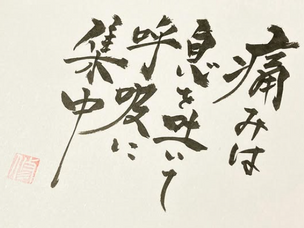 痛みは
息を吐いて
呼吸に
集中